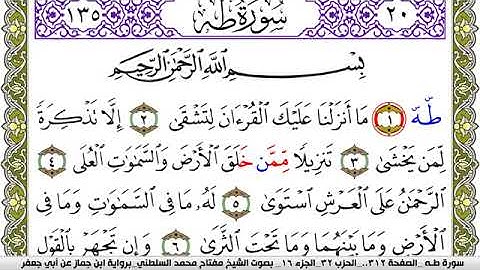 ١٣٥ سُورَةُ طه ٢٠
بِسْمِ اللَّهِ الرَّحْمَٰنِ الرَّحِيمِ
طه ١ مَا أَنزَلْنَا عَلَيْكَ الْقُرْءَانَ لِتَشْقَىٰ ٢ إِلَّا تَذْكِرَةً
لِّمَن يَخْشَىٰ ٣ تَنزِيلًا مِّمَّنْ خَلَقَ الْأَرْضَ وَالسَّمَٰوَٰتِ الْعُلَى ٤
الرَّحْمَٰنُ عَلَى الْعَرْشِ اسْتَوَىٰ ٥ لَهُ مَا فِي السَّمَٰوَٰتِ وَمَا فِي
الْأَرْضِ وَمَا بَيْنَهُمَا وَمَا تَحْتَ الثَّرَىٰ ٦ وَإِن تَجْهَرْ بِالْقَوْلِ
سورة طـه _الصفحة ٣١٢_.. الحزب ٣٢_ الجزء ١٦_ بصوت الشيخ مفتاح محمد السلطني_ برواية ابن جماز عن أبي جعفر